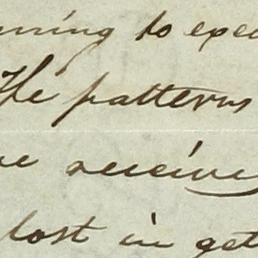 ning to exec
The patterns
receive
lost in get